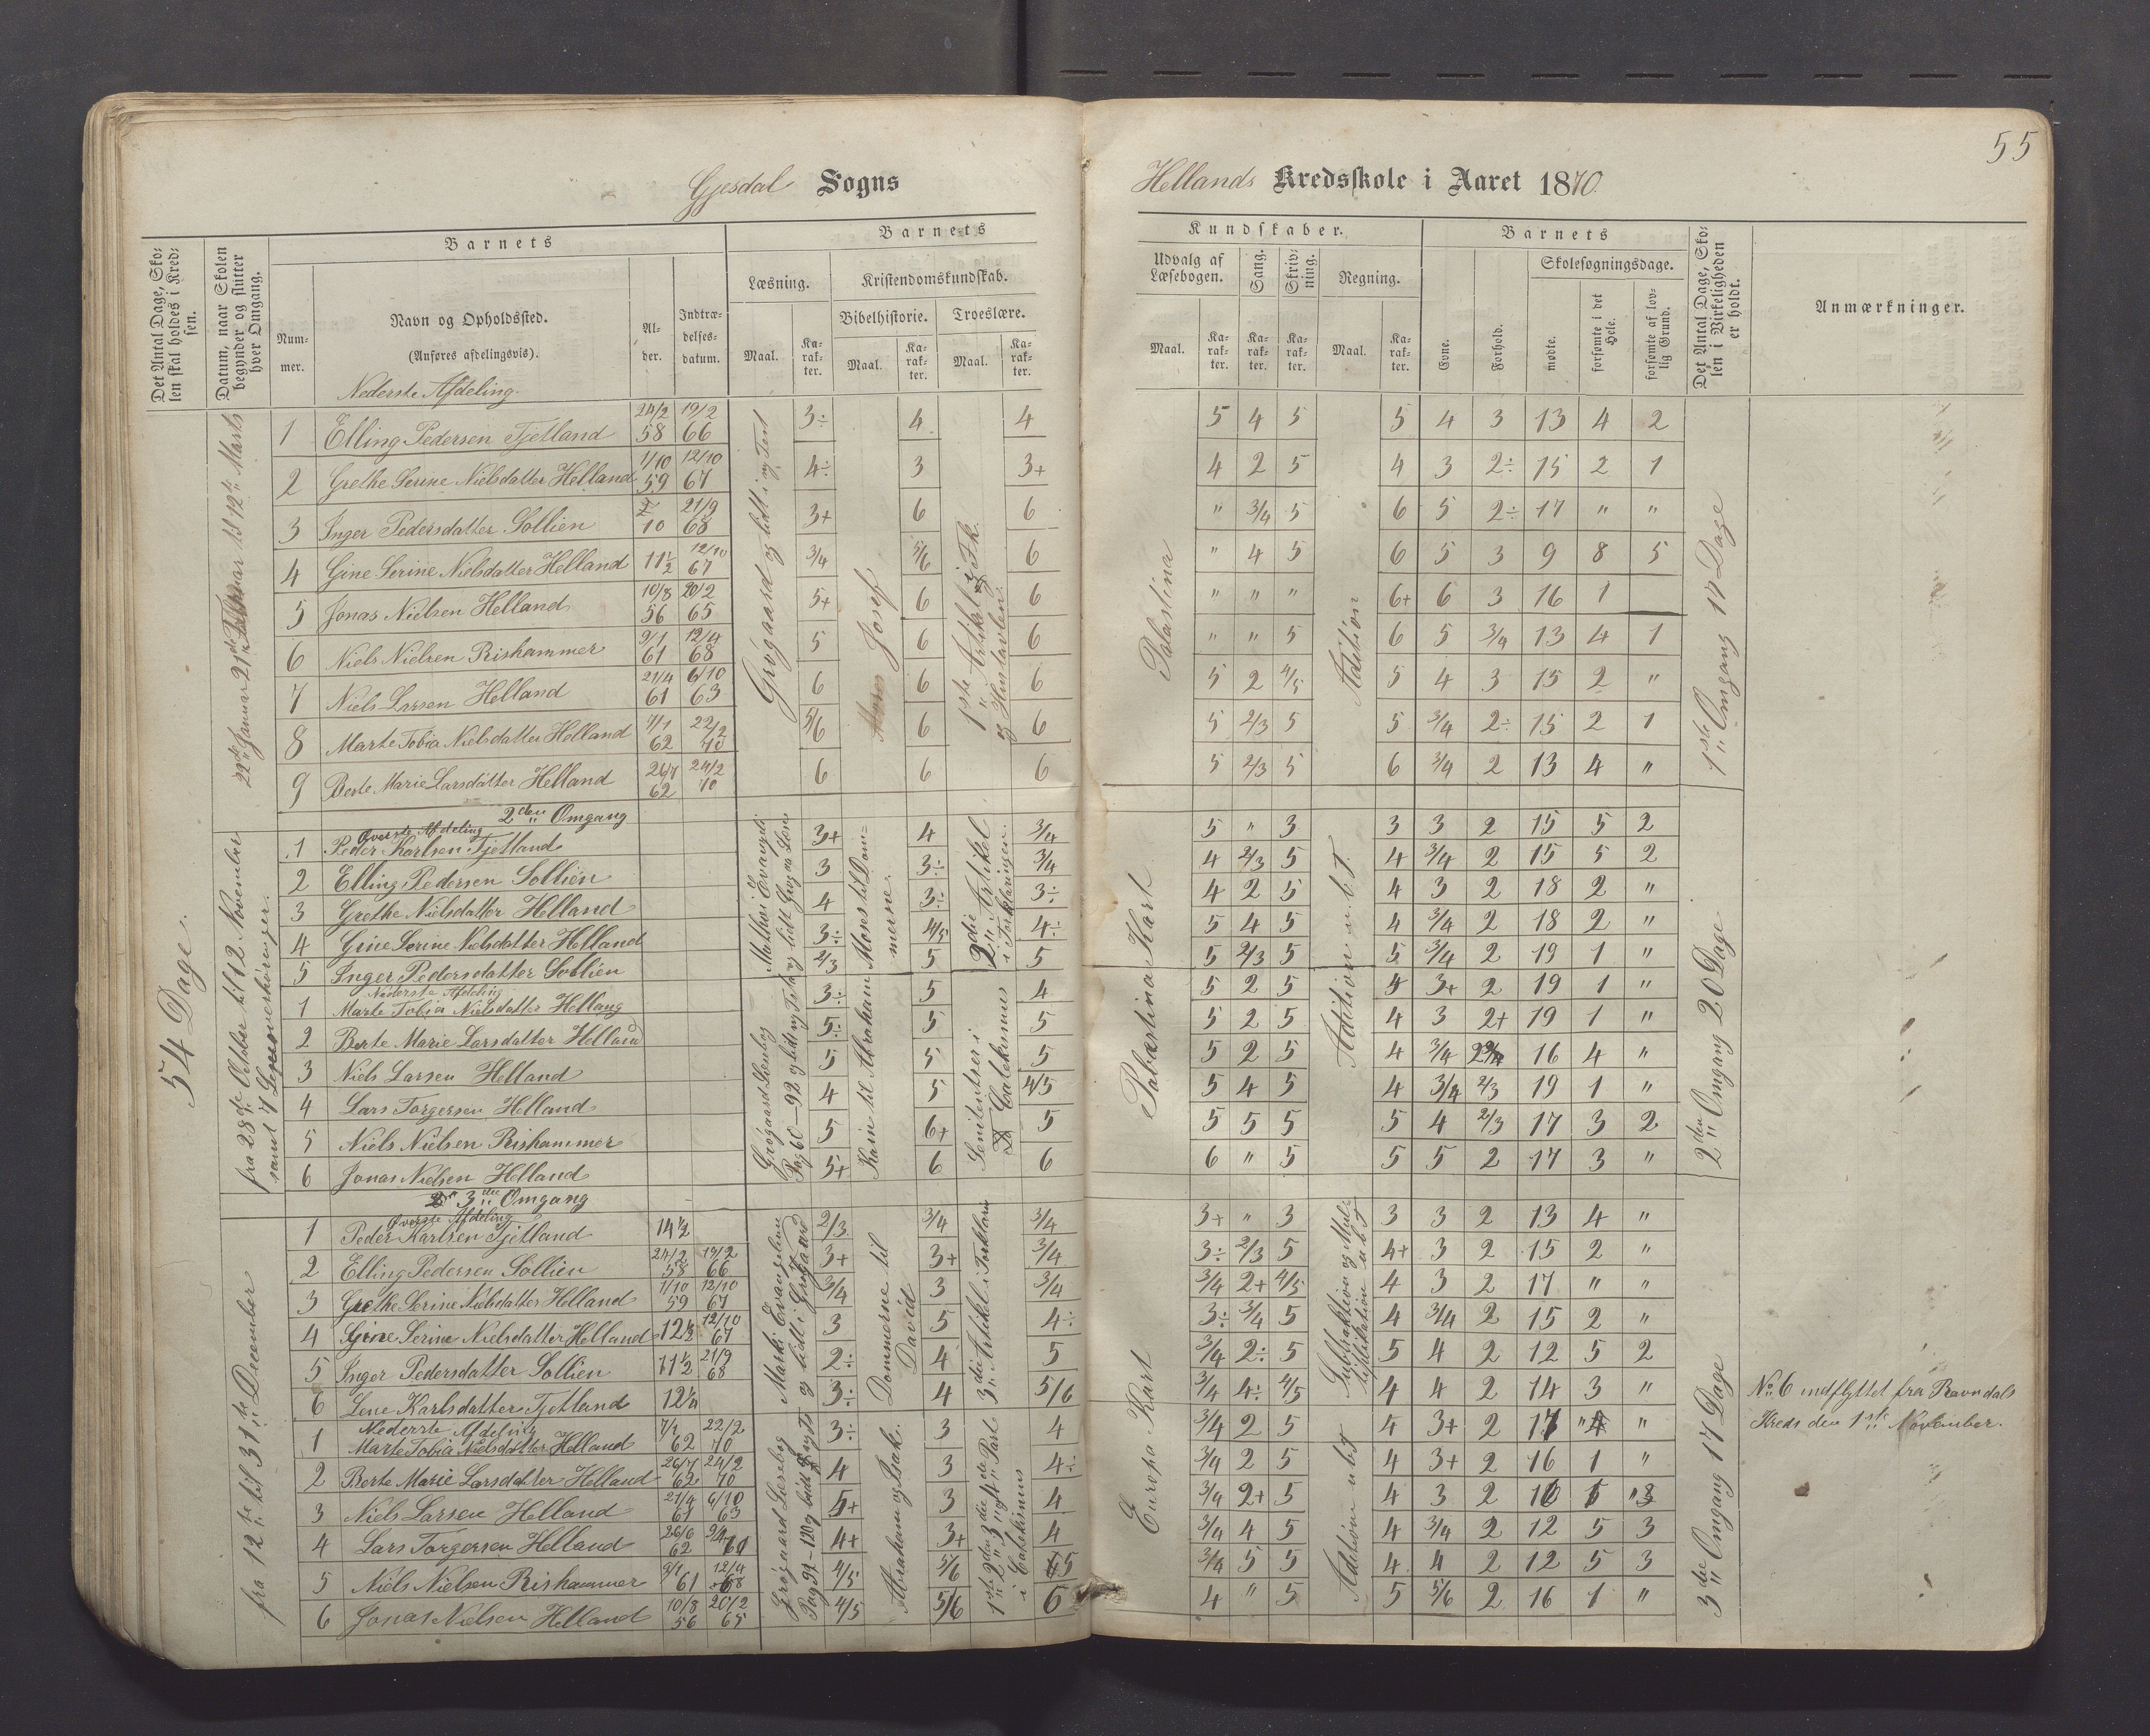 55
Gjesdal Sogns
Hellands Kredsskole i Aaret 1870.
Det Antal Dage, Skolen skal holdes i Kredsen.
Datum, naar Skolen begynder og slutter hver Omgang.
Barnets
Nummer.
Navn og Opholdssted.
(Anføres afdelingsvis).
Alder.
Indtrædelsesdatum.
Barnets
Læsning.
Kristendomskundskab.
Bibelhistorie.
Troeslære.
Maal.
Karakter.
Maal.
Karakter.
Maal.
Karakter.
Kundskaber.
Udvalg af Læsebogen.
Sang.
Skrivning.
Regning.
Maal.
Karakter.
Karakter.
Karakter.
Maal.
Karakter.
Barnets
Evne.
Forhold.
Skolesøgningsdage.
mødte.
forsømte i det Hele.
forsømte af lovlig Grund.
Det Antal Dage, Skolen i Virkeligheden er holdt.
Anmærkninger.
54 Dage.
Nederste Afdeling.
1 Elling Pedersen Tjetland 24/2 58 19/2 66 3÷ 4 4 5 4 5 5 4 3 13 4 2
2 Grethe Serine Nielsdatter Helland 1/10 59 12/10 67 4÷ 3 3+ 4 2 5 4 3 2÷ 15 2 1
3 Inger Pedersdatter Sollien 10 21/9 68 3+ 6 6 " 3/4 5 6 5 2÷ 17 " "
4 Gine Serine Nielsdatter Helland 11 1/2 12/10 67 3/4 5/6 6 " 4 5 6 5 3 9 8 5
5 Jonas Nielsen Helland 10/8 56 20/2 65 5+ 6 6 " " " 6+ 6 3 16 1
6 Niels Nielsen Rishammer 9/1 61 12/4 68 5 6 6 " " 5 6 5 3/4 13 4 1
7 Niels Larsen Helland 21/4 61 6/10 63 6 6 6 5 2 4/5 5 4 3 15 2 "
8 Marte Tobia Nielsdatter Helland 7/1 62 22/2 70 5/6 6 6 5 2/3 5 5 3/4 2÷ 15 2 1
9 Berte Marie Larsdatter Helland 26/7 62 24/2 70 6 6 6 5 2/3 5 6 3/4 2 13 4 "
Grøgaard og lidt i ny Test
Josef
1ste Artikel i Fk. og Hustavlen
Palæstina
Adition
1ste Omgang 17 Dage
2den Omgang
fra 28de October til 12 November samt
Øverste Afdeling
1 Peder Karlsen Tjetland 3+ 4 3/4 5 " 3 3 3 2 15 5 2
2 Elling Pedersen Sollien 3 3÷ 3/4 4 2/3 5 4 3/4 2 15 5 2
3 Grethe Nielsdatter Helland 4 3÷ 3÷ 4 2 5 4 3 2 18 2 "
4 Gine Serine Nielsdatter Helland 3÷ 4/5 4÷ 5 4 5 4 3/4 2 18 2 "
5 Inger Pedersdatter Sollien 2/3 5 5 5 2/3 5 5 3/4 2 19 1 "
Nederste Afdeling
1 Marte Tobia Nielsdatter Helland 3÷ 5 4 5 2 5 4 3+ 2 19 1 "
2 Berte Marie Larsdatter Helland 5÷ 5 5 5 2 5 4 3 2+ 19 1 "
3 Niels Larsen Helland 5 5 5 5 2 5 4 3/4 16 4 "
4 Lars Torgersen Helland 4 5 4/5 5 4 5 4 3/4 2/3 19 1 "
5 Niels Nielsen Rishammer 5 6+ 5 5 5 5 5 4 2/3 17 3 2
6 Jonas Nielsen Helland 5+ 6 6 6 " 5 5 5 2 17 3 "
Mathæi Evangeli
Moses til Dommerne.
2die Artikel i Forklaringen.
Pag 60–92
Kain til Abraham
Catekismus
Palæstina Kart
Adition u. b. T.
2den Omgang 20 Dage
3die Omgang
fra 12te til 31te December
Øverste Afdeling
1 Peder Karlsen Tjetland 14 1/2 2/3 3/4 3/4 3+ " 3 3 3 2 13 4 "
2 Elling Pedersen Sollien 24/2 58 19/2 66 3+ 3+ 3/4 3÷ 2/3 5 4+ 3 2 15 2 "
3 Grethe Serine Nielsdatter Helland 1/10 59 12/10 67 3/4 3 3/4 3/4 2+ 4/5 4 3 2 17 " "
4 Gine Serine Nielsdatter Helland 12 1/2 12/10 67 3 5 4÷ 3÷ 3/4 5 4 3/4 2 15 2 "
5 Inger Pedersdatter Sollien 11 1/2 21/9 68 2÷ 4 5 3/4 2÷ 5 5 4 2 12 5 2
6 Lene Karlsdatter Tjetland 12 1/4 3÷ 4 5/6 3/4 4÷ 4/5 4 4 2 14 3 "
Nederste Afdeling
1 Marte Tobia Nielsdatter Helland 7/1 62 22/2 70 3÷ 3 4 3/4 2 5 4 3+ 2 17 " "
2 Berte Marie Larsdatter Helland 26/7 62 24/2 70 4 3 4÷ 3/4 2 5 4 3+ 2 16 1 "
3 Niels Larsen Helland 21/4 61 6/10 63 5+ 3 4 3/4 2+ 5 4 3 2 16 1 "
4 Lars Torgersen Helland 26/6 62 4+ 3+ 4 3/4 4 5 4 3/4 2 12 5 3
5 Niels Nielsen Rishammer 9/1 61 12/4 68 4/5 5/6 5 3/4 5 5 4 4 2 12 5 3
6 Jonas Nielsen Helland 10/8 56 20/2 65 4/5 5/6 6 4 " 5 5 5/6 2 16 1 "
Marki Evangelium og lidt i Grøgaard
Dommerne til David
3die Artikel i Forklarin
Grøgaard Læsebog Pag 92–120
Abraham og Isak.
i Catekismus
Europa Kart
Subtraktion og Multiplikation u b T
Adition u b T
3die Omgang 17 Dage
No. 6 indflyttet fra Ravndals
Kreds den 1ste November.